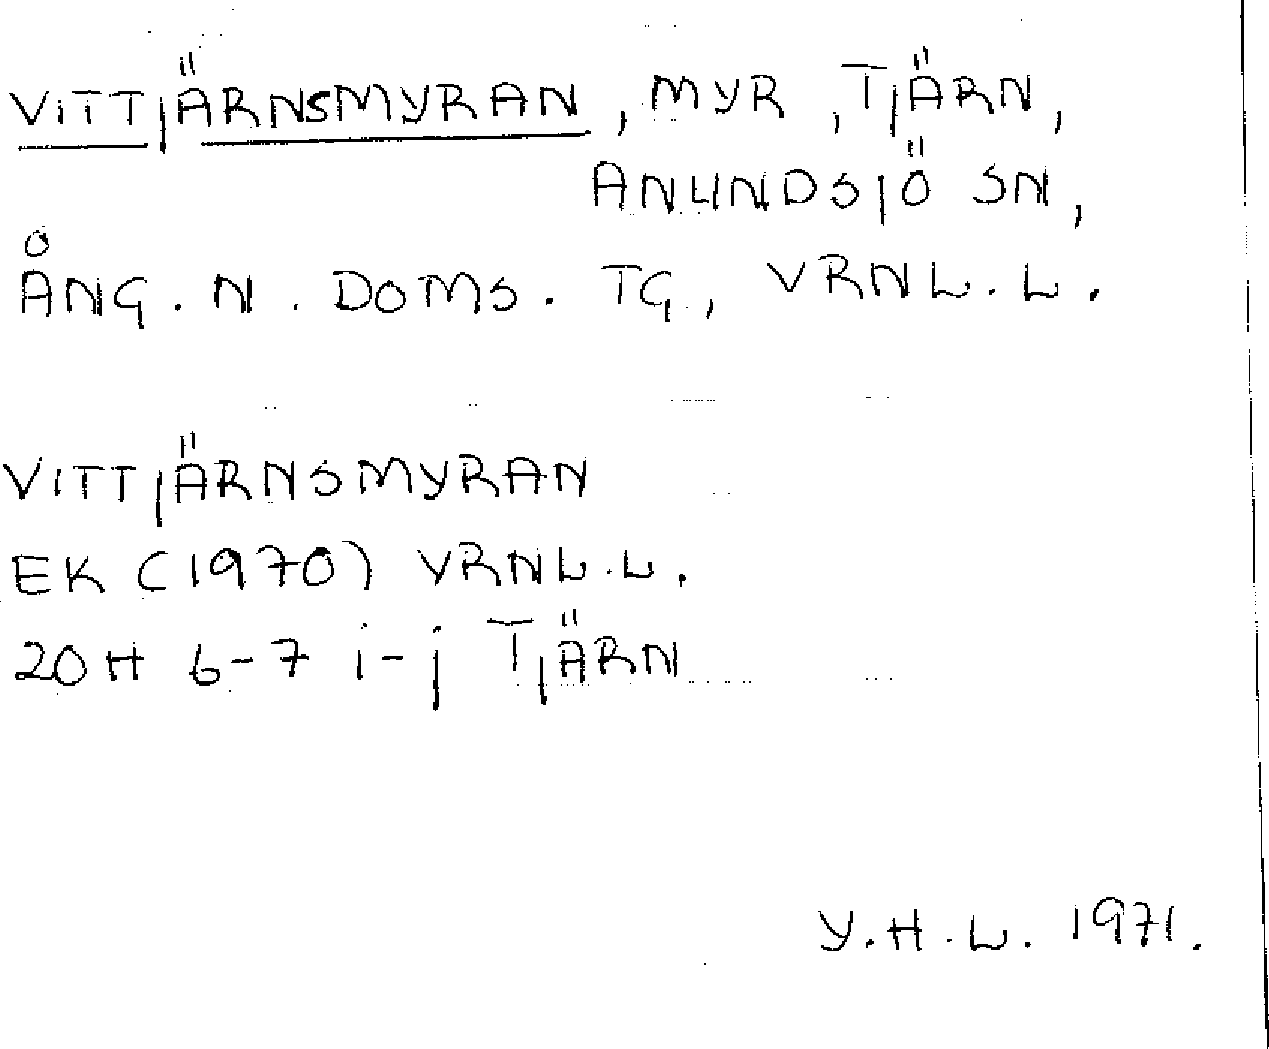 VITTJÄRNSMYRAN, MYR, TJÄRN,
ANUNDSJÖ SN,
ÅNG. N. DOMS. TG., VRNL.L.
VITTJÄRNSMYRAN
EK (1970) VRNL.L.
20H 6-7 i-j TJÄRN
Y.H.L. 1971.